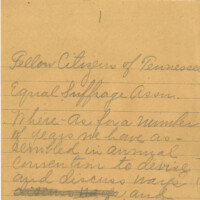 1
Fellow Citizens of Tennessee
Equal Suffrage Assn.
Where-As for a number
of years we have as-
sembled in annual
convention to devise
and discuss ways
and